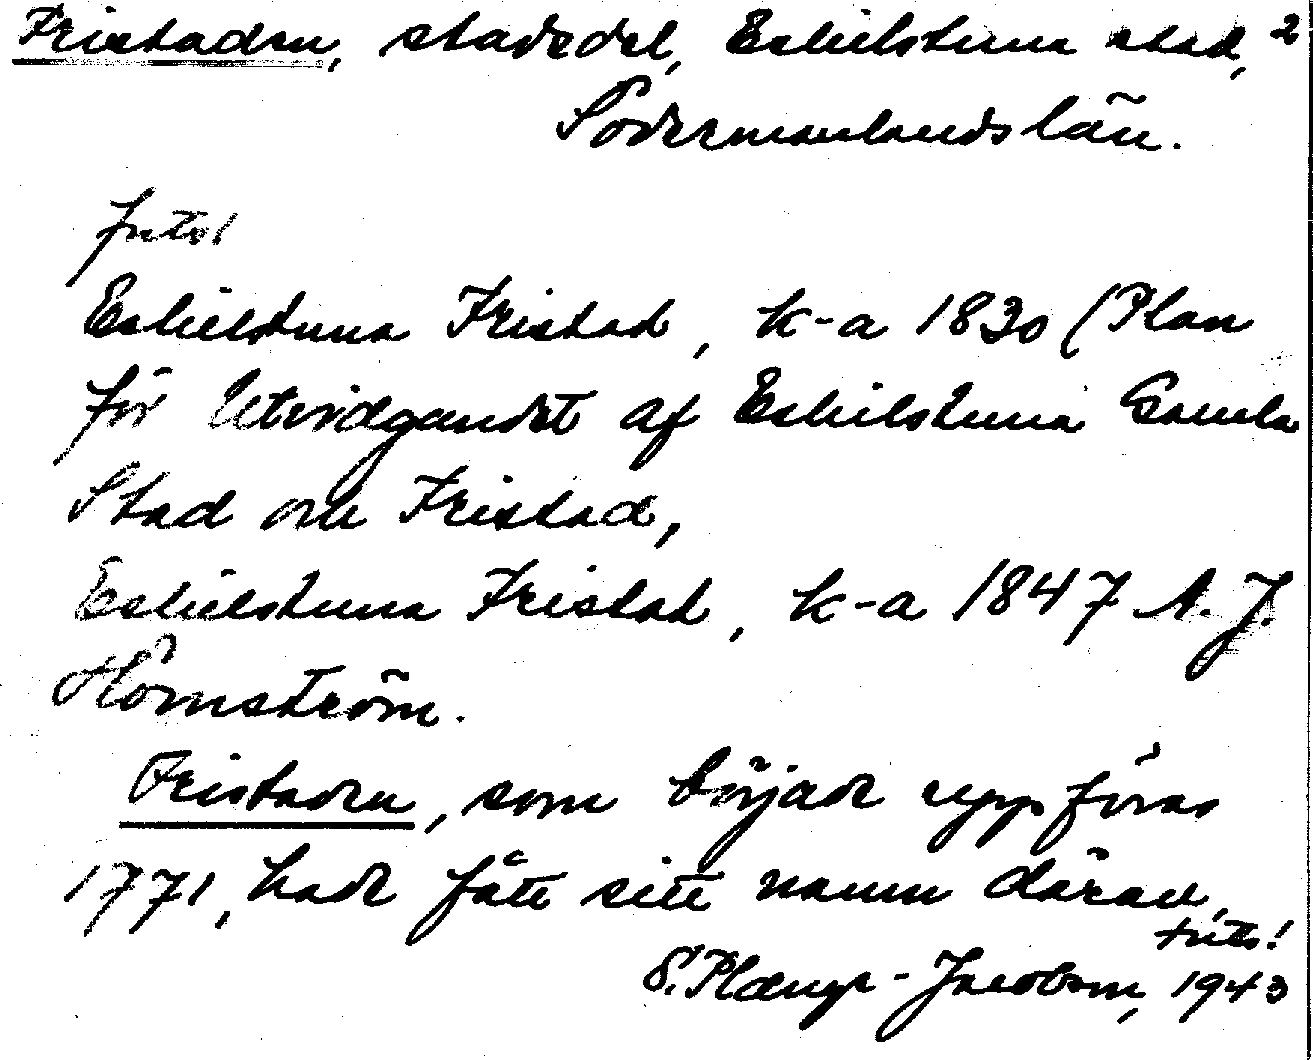 Fristaden, stadsdel, Eskilstuna stad, 2
Södermanlands län.
forts!
Eskilstuna Fristad, k-a 1830 (Plan
för Utvidgandet af Eskilstuna Gamla
Stad och Fristad,
Eskilstuna Fristad, k-a 1847 A. J.
Homström.
Fristaden, som började uppföras
1771, hade fått sitt namn därav,
forts!
S. Plænge-Jacobson, 1943